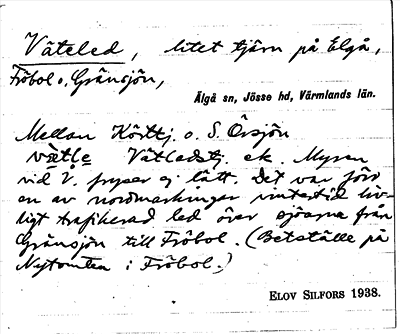 Väteled, litet tjärn på Elgå,
Fröbol o. Gränsjön,
Älgå sn, Jösse hd, Värmlands län.
Mellan Körttj. o. S. Örsjön
Vätledstj. ek. Myren
vid V. fryser ej lätt. Det var förr
en av nordmarkingar vintertid liv-
ligt trafikerad led över sjöarna från
Gränsjön till Fröbol. (Betställe på
Nytomten i Fröbol.)
ELOV SILFORS 1938.